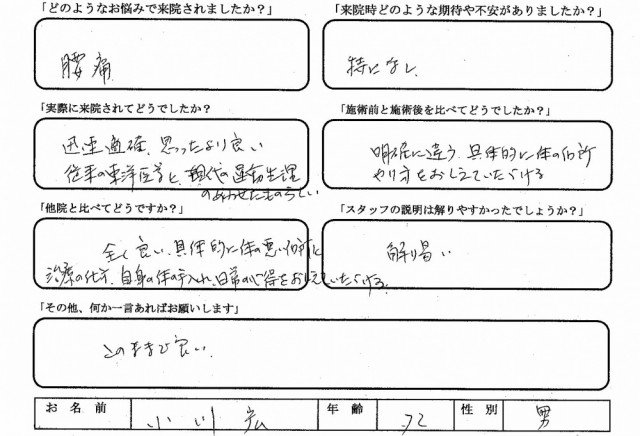 「どのようなお悩みで来院されましたか？」
腰痛
「来院時どのような期待や不安がありましたか？」
特になし
「実際に来院されてどうでしたか？
迅速適確、思ったより良い
従来の東洋医学と、現代の運動生理
のあわせたものらしい
「施術前と施術後を比べてどうでしたか？」
明確に違う、具体的に体の個所
やり方をおしえていただける
「他院と比べてどうですか？」
全く良い、具体的に体の悪い個所と
治療の仕方、自身の体の手入れ、日常の心得をおしえていただける。
「スタッフの説明は解りやすかったでしょうか？」
解り易い
「その他、何か一言あればお願いします」
このままで良い。
お名前 小川 宏 年齢 72 性別 男